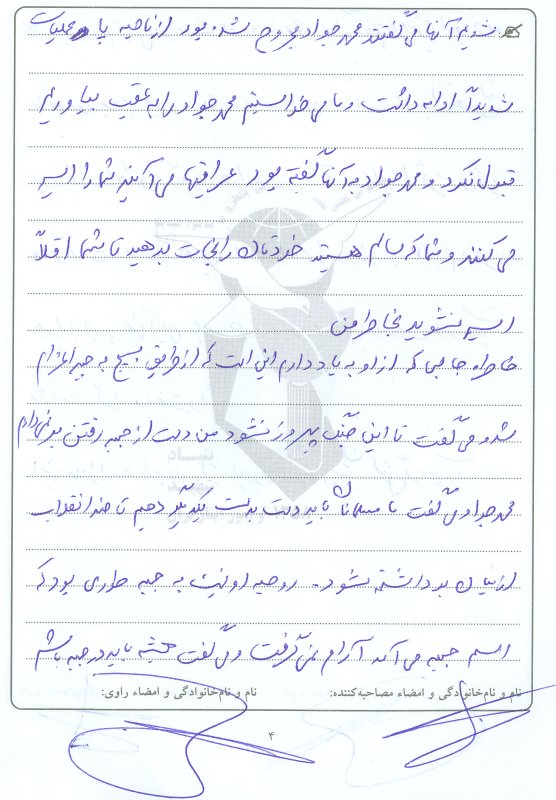 شدیم آنها می‌گفتند محمد جواد مجروح شده بود از ناحیه پا و عملیات
شدیداً ادامه داشت و ما می خواستیم محمد جواد را به عقب بیاوریم
قبول نکرد و محمد جواد به آنها گفته بود عراقیها می آیند شما را اسیر
می کنند و شما که سالم هستید خودتان را نجات بدهید تا شما اقلاً
اسیر نشوید بخاطر من
خاطره جالبی که از او به یاد دارم این است که از طریق بسیج به جبهه اعزام
شد و می گفت تا این جنگ پیروز نشود من دست از جبهه رفتن بر نمی دارم
محمد جواد می گفت ما مسلمانان باید دست بدست یکدیگر دهیم تا ضد انقلاب
از میان برداشته شود. روحیه او نسبت به جبهه طوری بود که
اسم جبهه می آمد آرام نمی گرفت و می گفت همیشه باید در جبهه باشم
نام و نام‌خانوادگی و امضاء مصاحبه‌کننده: نام و نام‌خانوادگی و امضاء راوی:
۴